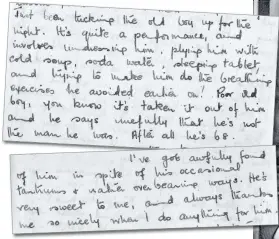 Just been tucking the old boy up for the
night. It's quite a performance, and
involves undressing him, plying him with
cold soup, soda water, sleeping tablet
and trying to make him do the breathing
exercises he avoided earlier on! Poor old
boy, you know it's taken it out of him
and he says ruefully that he's not
the man he was. After all he's 68.
I've got awfully fond
of him in spite of his occasional
tantrums & rather overbearing ways. He's
very sweet to me, and always thanks
me so nicely when I do anything for him.